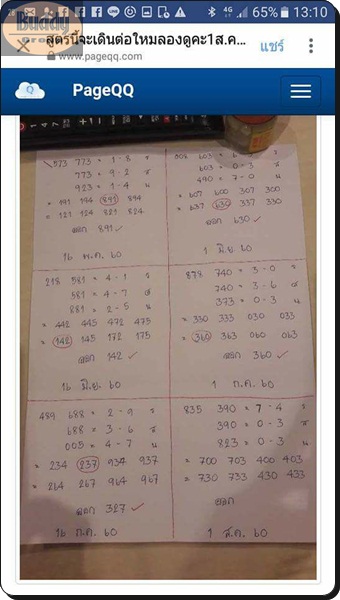 Buddy
4G 65% 13:10
สูตรนี้จะเดินต่อใหมลองดูคะ1ส.ค...
www.pageqq.com
แชร์
PageQQ
573 773 = 1-8 ร
773 = 9-2 ส
923 = 1-4 น
= 191 194 891 894
= 121 124 821 824
ออก 891 ✓
16 พ.ค. 60
603 =
603 = 0-3 ส
490 = 7-0 น
= 607 600 307 300
= 637 630 337 330
ออก 630 ✓
1 มิ.ย 60
218 581 = 4-1 ร
581 = 4-7 ส
881 = 2-5 น
= 442 445 472 475
= 142 145 172 175
ออก 142 ✓
16 มิ.ย. 60
878 740 = 3-0 ร
740 = 3-6 ส
373 = 0-3 น
= 330 333 030 033
= 360 363 060 063
ออก 360 ✓
1 ก.ค. 60
489 688 = 2-9 ร
688 = 3-6 ส
005 = 4-7 น
= 234 237 934 937
= 264 267 964 967
ออก 327 ✓
16 ก.ค. 60
835 390 = 7-4 ร
390 = 0-3 ส
823 = 0-3 น
= 700 703 400 403
= 730 733 430 433
ออก
1 ส.ค. 60